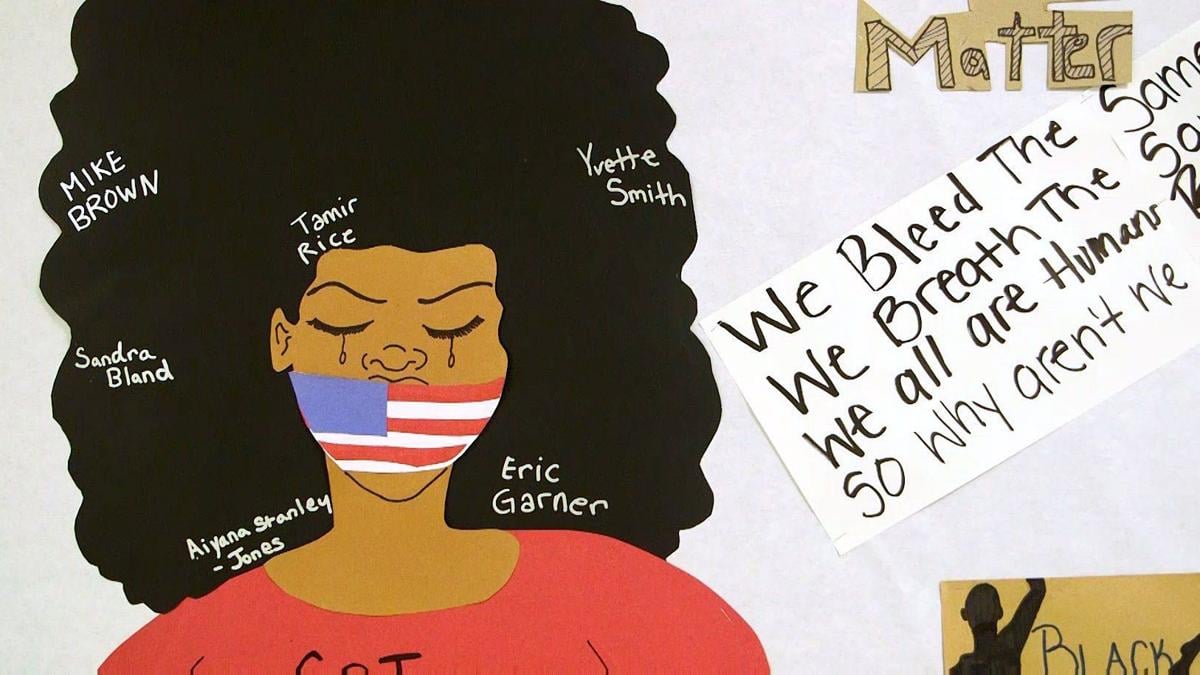 Matter
MIKE
BROWN
Yvette
Smith
Tamir
Rice
Sandra
Bland
Eric
Garner
Aiyana Stanley
- Jones
We Bleed The Same
We Breath The
We all are Humans
SO Why aren't We
BLACK